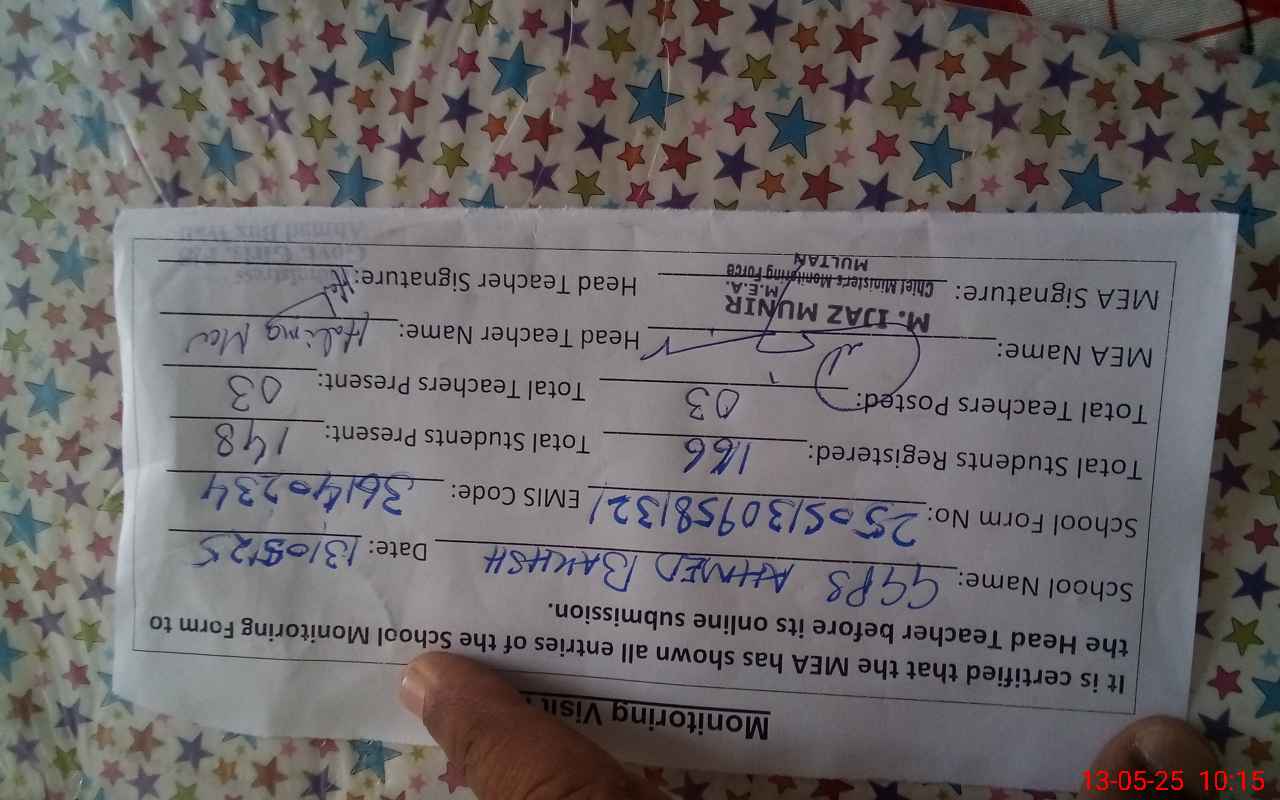 Monitoring Visit
It is certified that the MEA has shown all entries of the School Monitoring Form to
the Head Teacher before its online submission.
School Name: GGPS AHMED BAKHSH Date: 13/05/25
School Form No: 25051309581321 EMIS Code: 36140234
Total Students Registered: 166 Total Students Present: 148
Total Teachers Posted: 03 Total Teachers Present: 03
MEA Name: M. IJAZ MUNIR Head Teacher Name: Halima
M.E.A.
MEA Signature: Chief Minister's Monitoring Force Head Teacher Signature:
MULTAN
Ahmed Bux
13-05-25 10:15